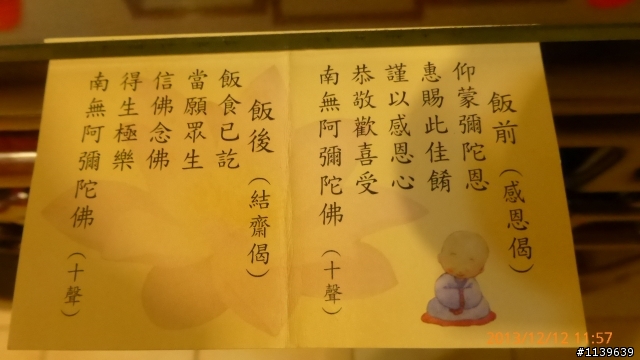 飯前（感恩偈）
仰蒙彌陀恩
惠賜此佳餚
謹以感恩心
恭敬歡喜受
南無阿彌陀佛（十聲）
飯後（結齋偈）
飯食已訖
當願眾生
信佛念佛
得生極樂
南無阿彌陀佛（十聲）
2013/12/12 11:57
#1139639